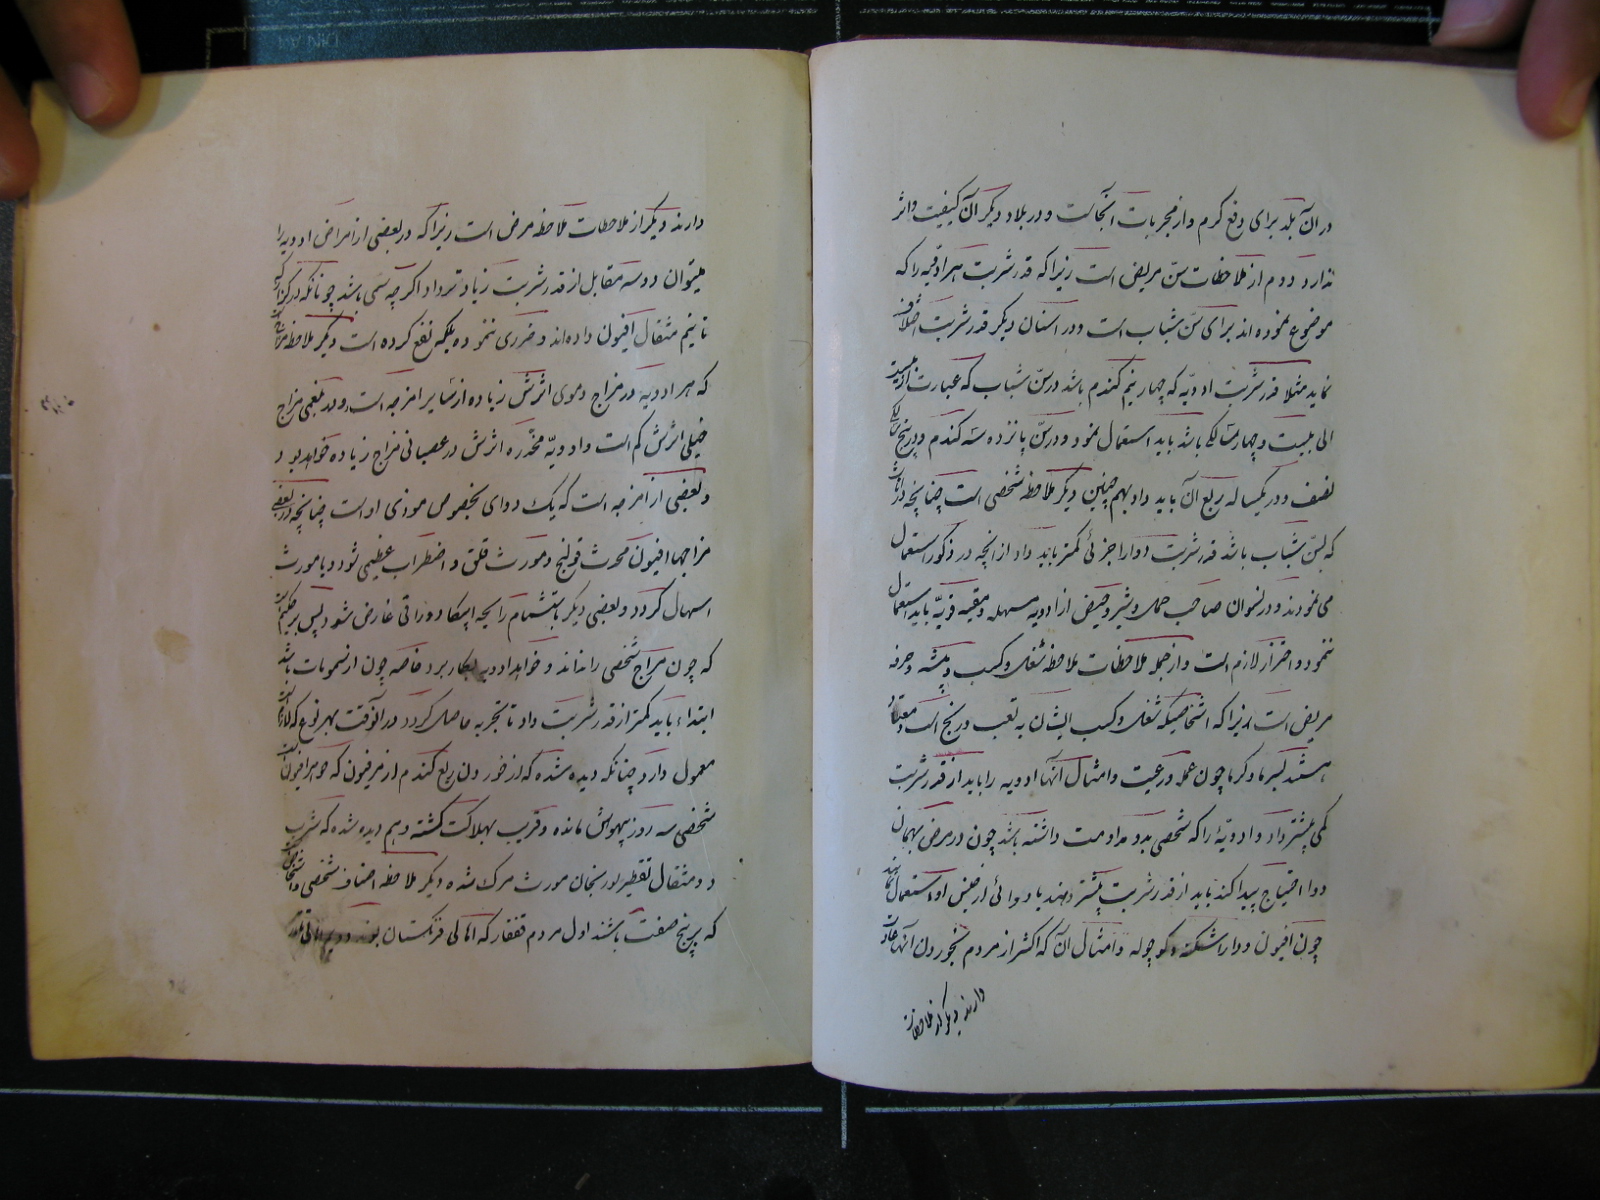 در آن بلد برای دفع کرم و از مجربات آنجاست و در بلاد دیگر آن کیفیت و اثر
ندارد دوم از ملاحظات سنّ مریض است زیراکه قدر شربت هر ادویه را که
موضوع نموده اند برای سنّ شباب است و در اسنان دیگر قدر شربت اختلاف
نماید مثلا قدر شربت ادویّه که چهار نیم کندم باشد در سنّ شباب که عبارت از بیست
الی بیست و چهار سالگی باشد باید استعمال نمود و در سنّ پانزده سه کندم و در پنج سالگی
نصف و در یکساله ربع آن باید داد بهم چنین دیگر ملاحظه شخصی است چنانچه در اناث
که بسنّ شباب باشد قدر شربت دوا را جزئی کمتر باید داد از آنچه در ذکور استعمال
می نمودند و در نسوان صاحب حمل و شیر و حیض از ادویه مسهله و مقیه قویّه باید استعمال
ننمود و احتراز لازم است و از جمله ملاحظات ملاحظه شغل و کسب و پیشه و حرفه
مریض است زیراکه اشخاصیکه شغل و کسب ایشان به تعب و رنج است و معتاد
هستند بسرما و کرما چون عمله و رعیت و امثال آنها ادویه را باید از قدر شربت
کمی بیشتر داد و ادویّۀ را که شخصی بدو مداومت داشته باشد چون در مرض بهمان
دوا احتیاج پیدا کند باید از قدر شربت بیشتر دهند یا دوائی از جنس او استعمال نمایند
چون افیون و دار اشکنه و کوچوله و امثال آن که اکثر از مردم بخوردن آنها عادت
دارند دیگر از ملاحظات
دارند دیگر از ملاحظات ملاحظه مرض است زیراکه در بعضی از امراض ادویه را
میتوان دو سه مقابل از قدر شربت زیادتر داد اکر چه سمی باشد چونانکه در کزاز که
تا نیم مثقال افیون داده اند و ضرری ننموده بلکه نفع کرده است دیگر ملاحظه مزاج
که هر ادویه در مزاج دموی اثرش زیاده از سایر امزجه است و در بلغمی مزاج
خیلی اثرش کم است و ادویّه مخدّره اثرش در عصبانی مزاج زیاده خواهد بود
و بعضی از امزجه است که یک دوای بخصوص موذی او است چنانچه در بعضی
مزاجها افیون محدث قولنج و مورث قلق و اضطراب عظیمی شود و یا مورث
اسهال کردد و بعضی دیگر باستشمام رایحه اپیکا دورانی عارض شود پس بر حکیم است
که چون مزاج شخصی را نداند و خواهد ادویه بکار برد خاصه چون از سمومات باشد
ابتداء باید کمتر از قدر شربت داد تا تجربه حاصل کردد در آنوقت بهر نوع که لازم است
معمول دارد چنانکه دیده شده که از خوردن ربع کندم از مرفیون که جوهر افیون است
شخصی سه روز بیهوش مانده و قریب بهلاکت کشته و هم دیده شده که شرب
دو مثقال تقطیر سورنجان مورث مرک شده دیگر ملاحظه اصناف شخصی و اشخاص است
که بر پنج صنفت باشند اول مردم قفقاز که اهالی فرنکستان بود دویم